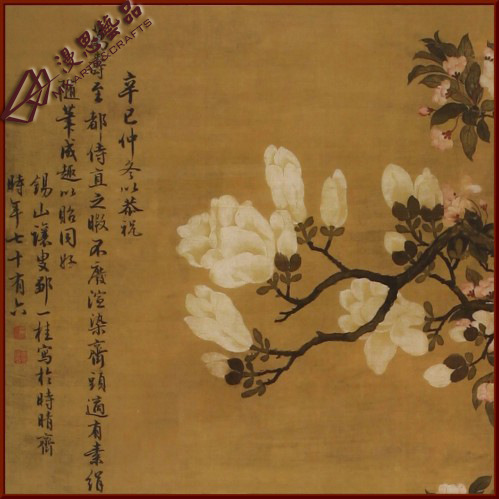 漫思藝品
ARTS&CRAFTS
辛巳仲冬以恭祝
壽至都侍直之暇不廢渲染齋頭適有素絹
隨筆成趣以貽同好
錫山讓叟鄒一桂寫於時晴齋
時年七十有六